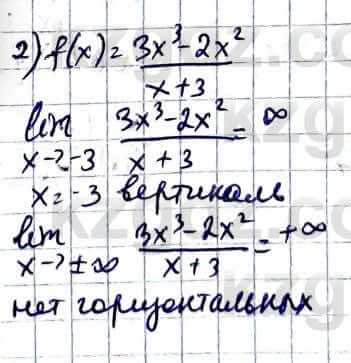 2) f(x) = (3x³ - 2x²)/(x + 3)
lim (3x³ - 2x²)/(x + 3) = ∞
x → -3
x = -3 вертикаль
lim (3x³ - 2x²)/(x + 3) = +∞
x → ±∞
нет горизонтальных